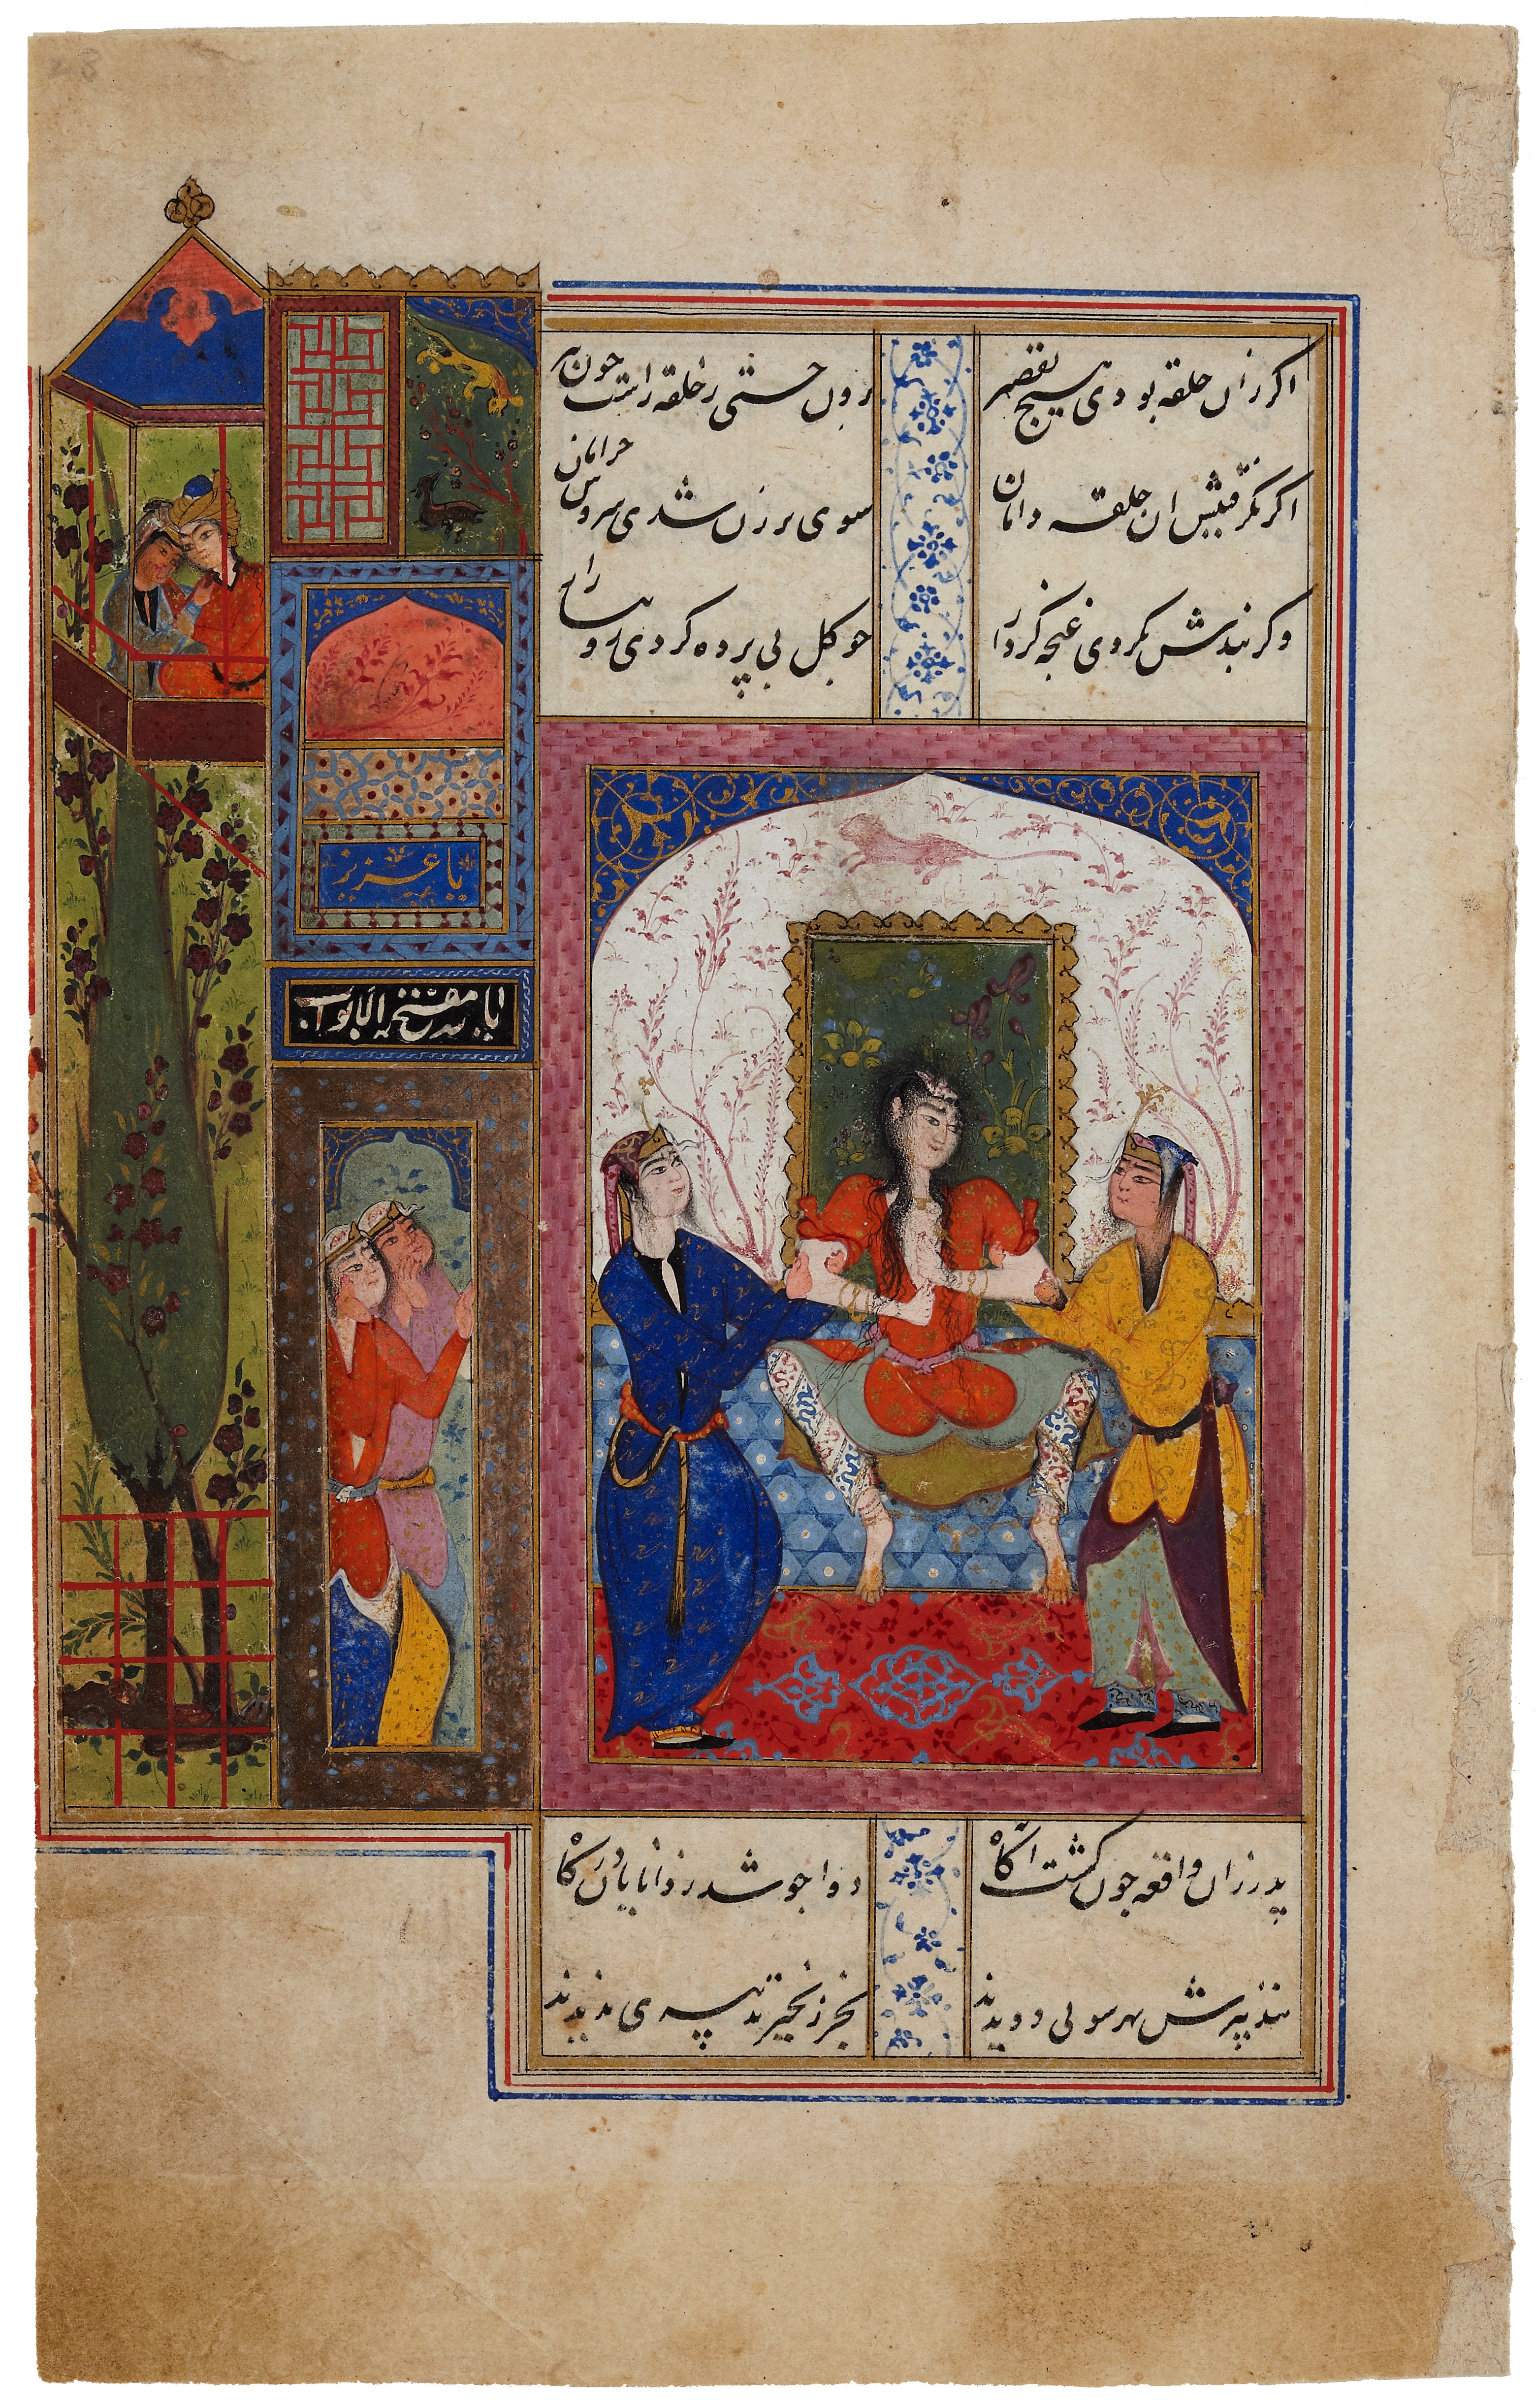 اکر زان حلقه بودی هیچ تقصیر
برون جستی ز حلقه راست چون تیر
اکر نکرفتیش ان حلقه دامان
سوی برزن شدی سروش خرامان
وکر بندش نکردی غنچه کردار
چو کل بی پرده کردی رو
یا عزیز
یا مفتح الابواب
پدر زان واقعه چون کشت آکاه
دوا جو شد ز دانایان درکاه
بتدبیرش بهر سوئی دویدند
بجز زنجیر تدبیری ندیدند